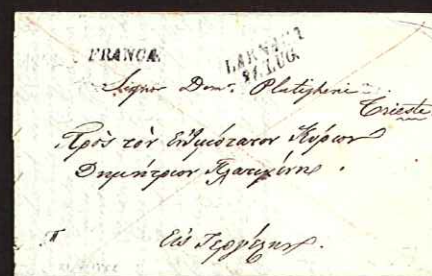 FRANCA.
LARNACA
21. LUG.
Signor Dem.º Platigheni
Trieste
Πρὸς τὸν Εὐτιμότατον Κύριον
Δημήτριον Πλατυγένην.
Εἰς Τεργέστην.